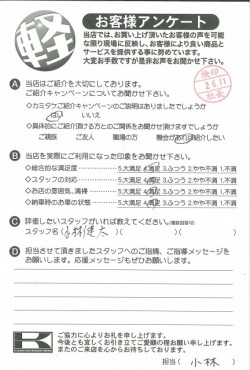 軽
お客様アンケート
当店では、お買い上げ頂いたお客様の声を可能
な限り現場に反映し、お客様により良い商品と
サービスを提供する事に努めています。
大変お手数ですが是非お声をお聞かせ下さい。
検印
26.11
A 当店はご紹介を大切にしております。
ご紹介キャンペーンについてお聞かせ下さい。
◇カスタくご紹介キャンペーンのご説明はありましたでしょうか
はい いいえ
◇具体的にご紹介頂ける方とのご関係をお聞かせ頂けますでしょうか
ご親族 ご友人 職場の方 機会があれば紹介したい
B 当店を実際にご利用になった印象をお聞かせ下さい。
◇総合的な満足度 5.大満足 4.満足 3.ふつう 2.やや不満 1.不満
◇スタッフの対応 5.大満足 4.満足 3.ふつう 2.やや不満 1.不満
◇お店の雰囲気、清掃 5.大満足 4.満足 3.ふつう 2.やや不満 1.不満
◇納車時のお車の状態 5.大満足 4.満足 3.ふつう 2.やや不満 1.不満
C 評価したいスタッフがいれば教えてください。(複数回答可)
スタッフ名(小林建太)( )( )
D 担当させて頂きましたスタッフへのご指摘、ご指導メッセージを
お願いします。応援メッセージもぜひお願いします。
K
ご協力に心よりお礼を申し上げます。
今後とも宜しくお引き立てご愛顧の程お願い申し上げます。
またのご来店を心からお待ちしております。
担当(小林)